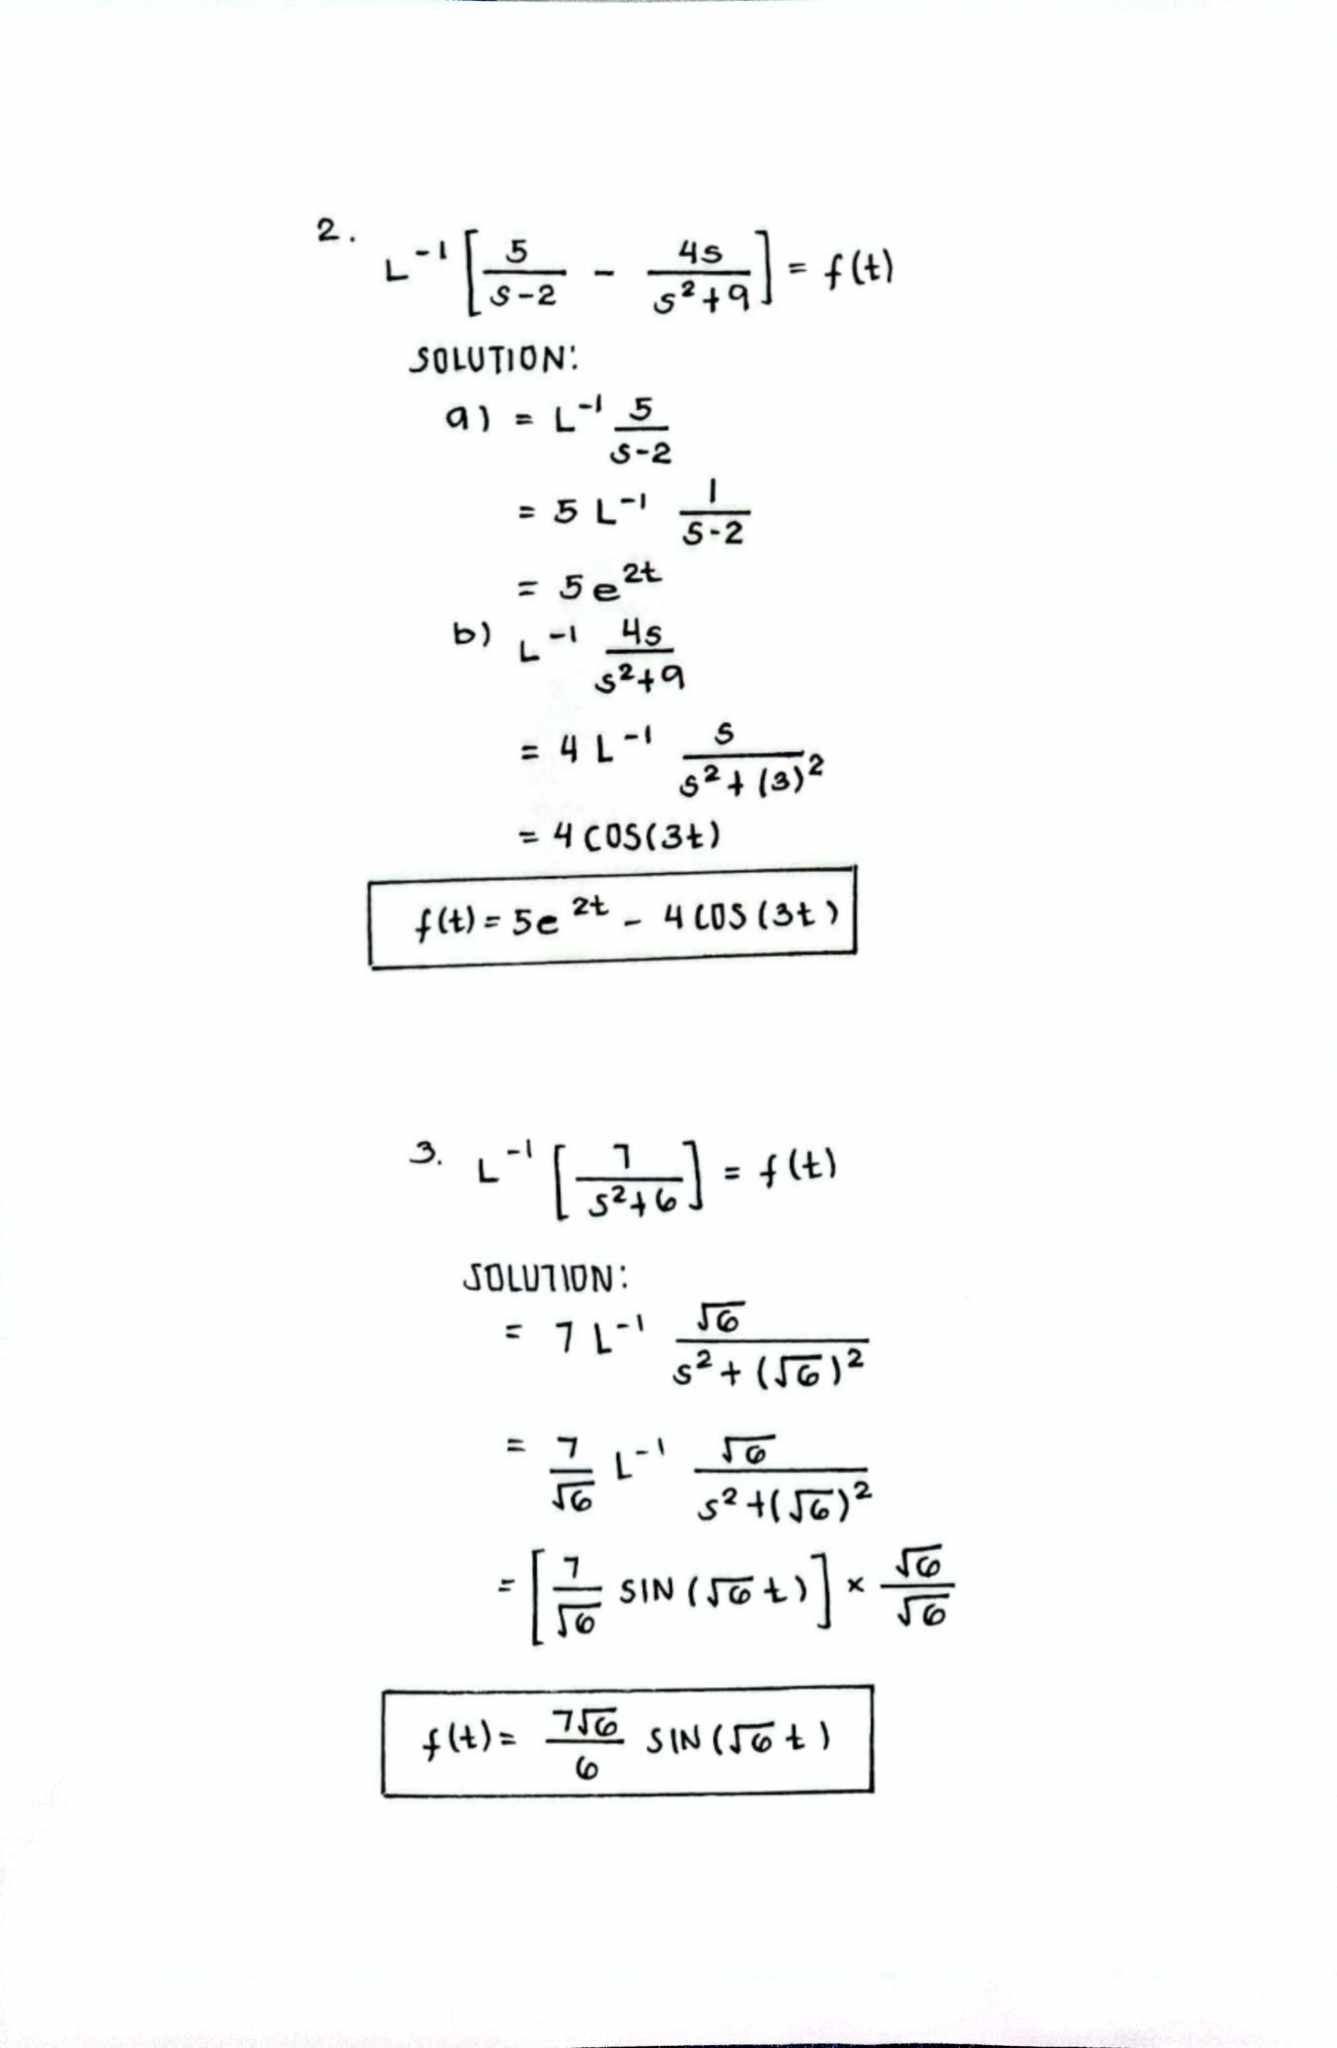 2.
L⁻¹ [ 5/(s-2) - 4s/(s²+9) ] = f(t)
SOLUTION:
a) = L⁻¹ 5/(s-2)
= 5 L⁻¹ 1/(s-2)
= 5e^(2t)
b) L⁻¹ 4s/(s²+9)
= 4 L⁻¹ s/(s²+(3)²)
= 4 COS(3t)
f(t) = 5e^(2t) - 4 COS(3t)
3. L⁻¹ [ 7/(s²+6) ] = f(t)
SOLUTION:
= 7 L⁻¹ √6/(s²+(√6)²)
= 7/√6 L⁻¹ √6/(s²+(√6)²)
= [ 7/√6 SIN(√6 t) ] × √6/√6
f(t) = 7√6/6 SIN(√6 t)